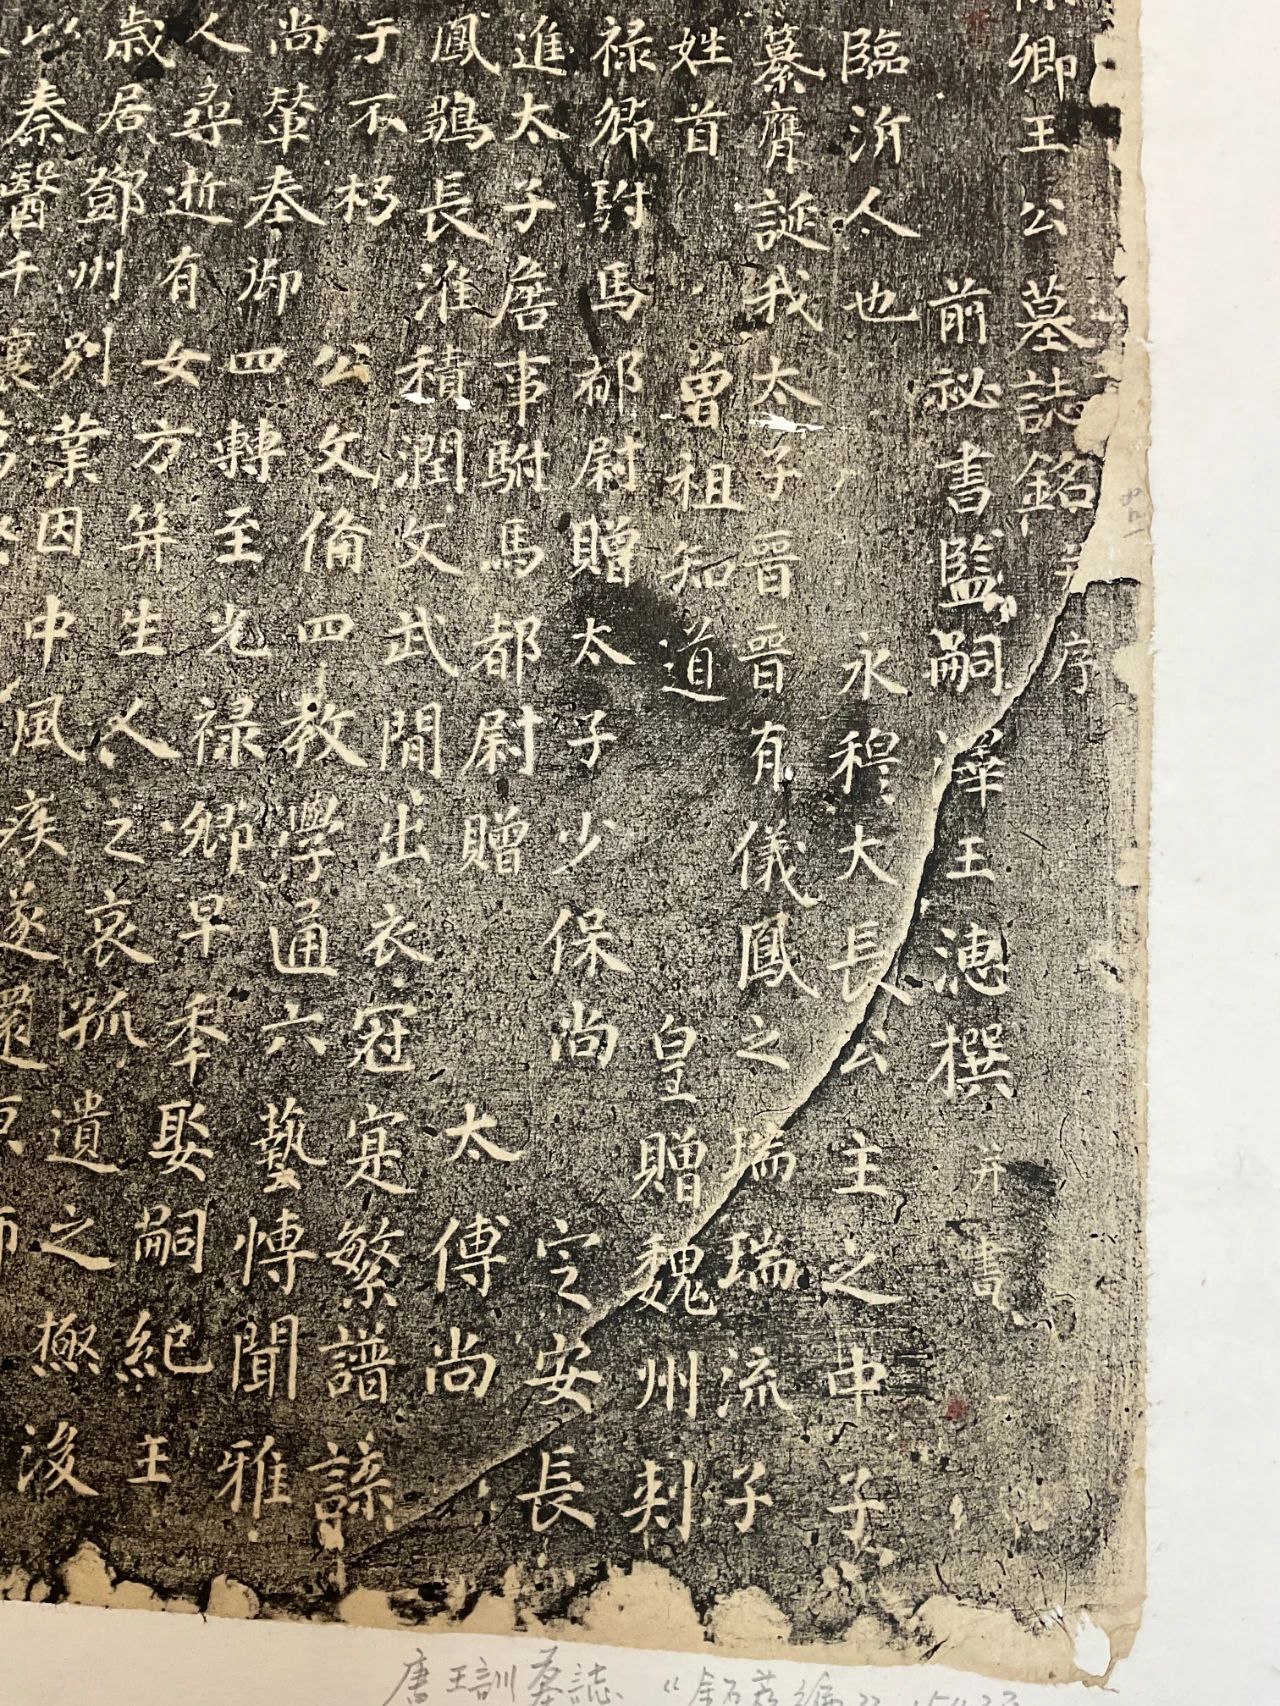 卿王公墓誌銘并序
前祕書監嗣澤王潓撰并書
臨沂人也永穆大長公主之中子
纂膺誕我太子晉晉有儀鳳之瑞瑞流子
姓首曾祖知道皇贈魏州刺
祿卿駙馬都尉贈太子少保尚定安長
進太子詹事駙馬都尉贈太傅尚
鳳鵷長淮積潤文武間出衣冠寔繁譜諜
于不朽公文俻四教學通六藝博聞雅
尚輦奉御四轉至光祿卿早年娶嗣紀王
人尋逝有女方笄生人之哀孤遺之極後
歲居鄧州別業因中風疾遂還京師
以秦醫千
唐王訓墓誌